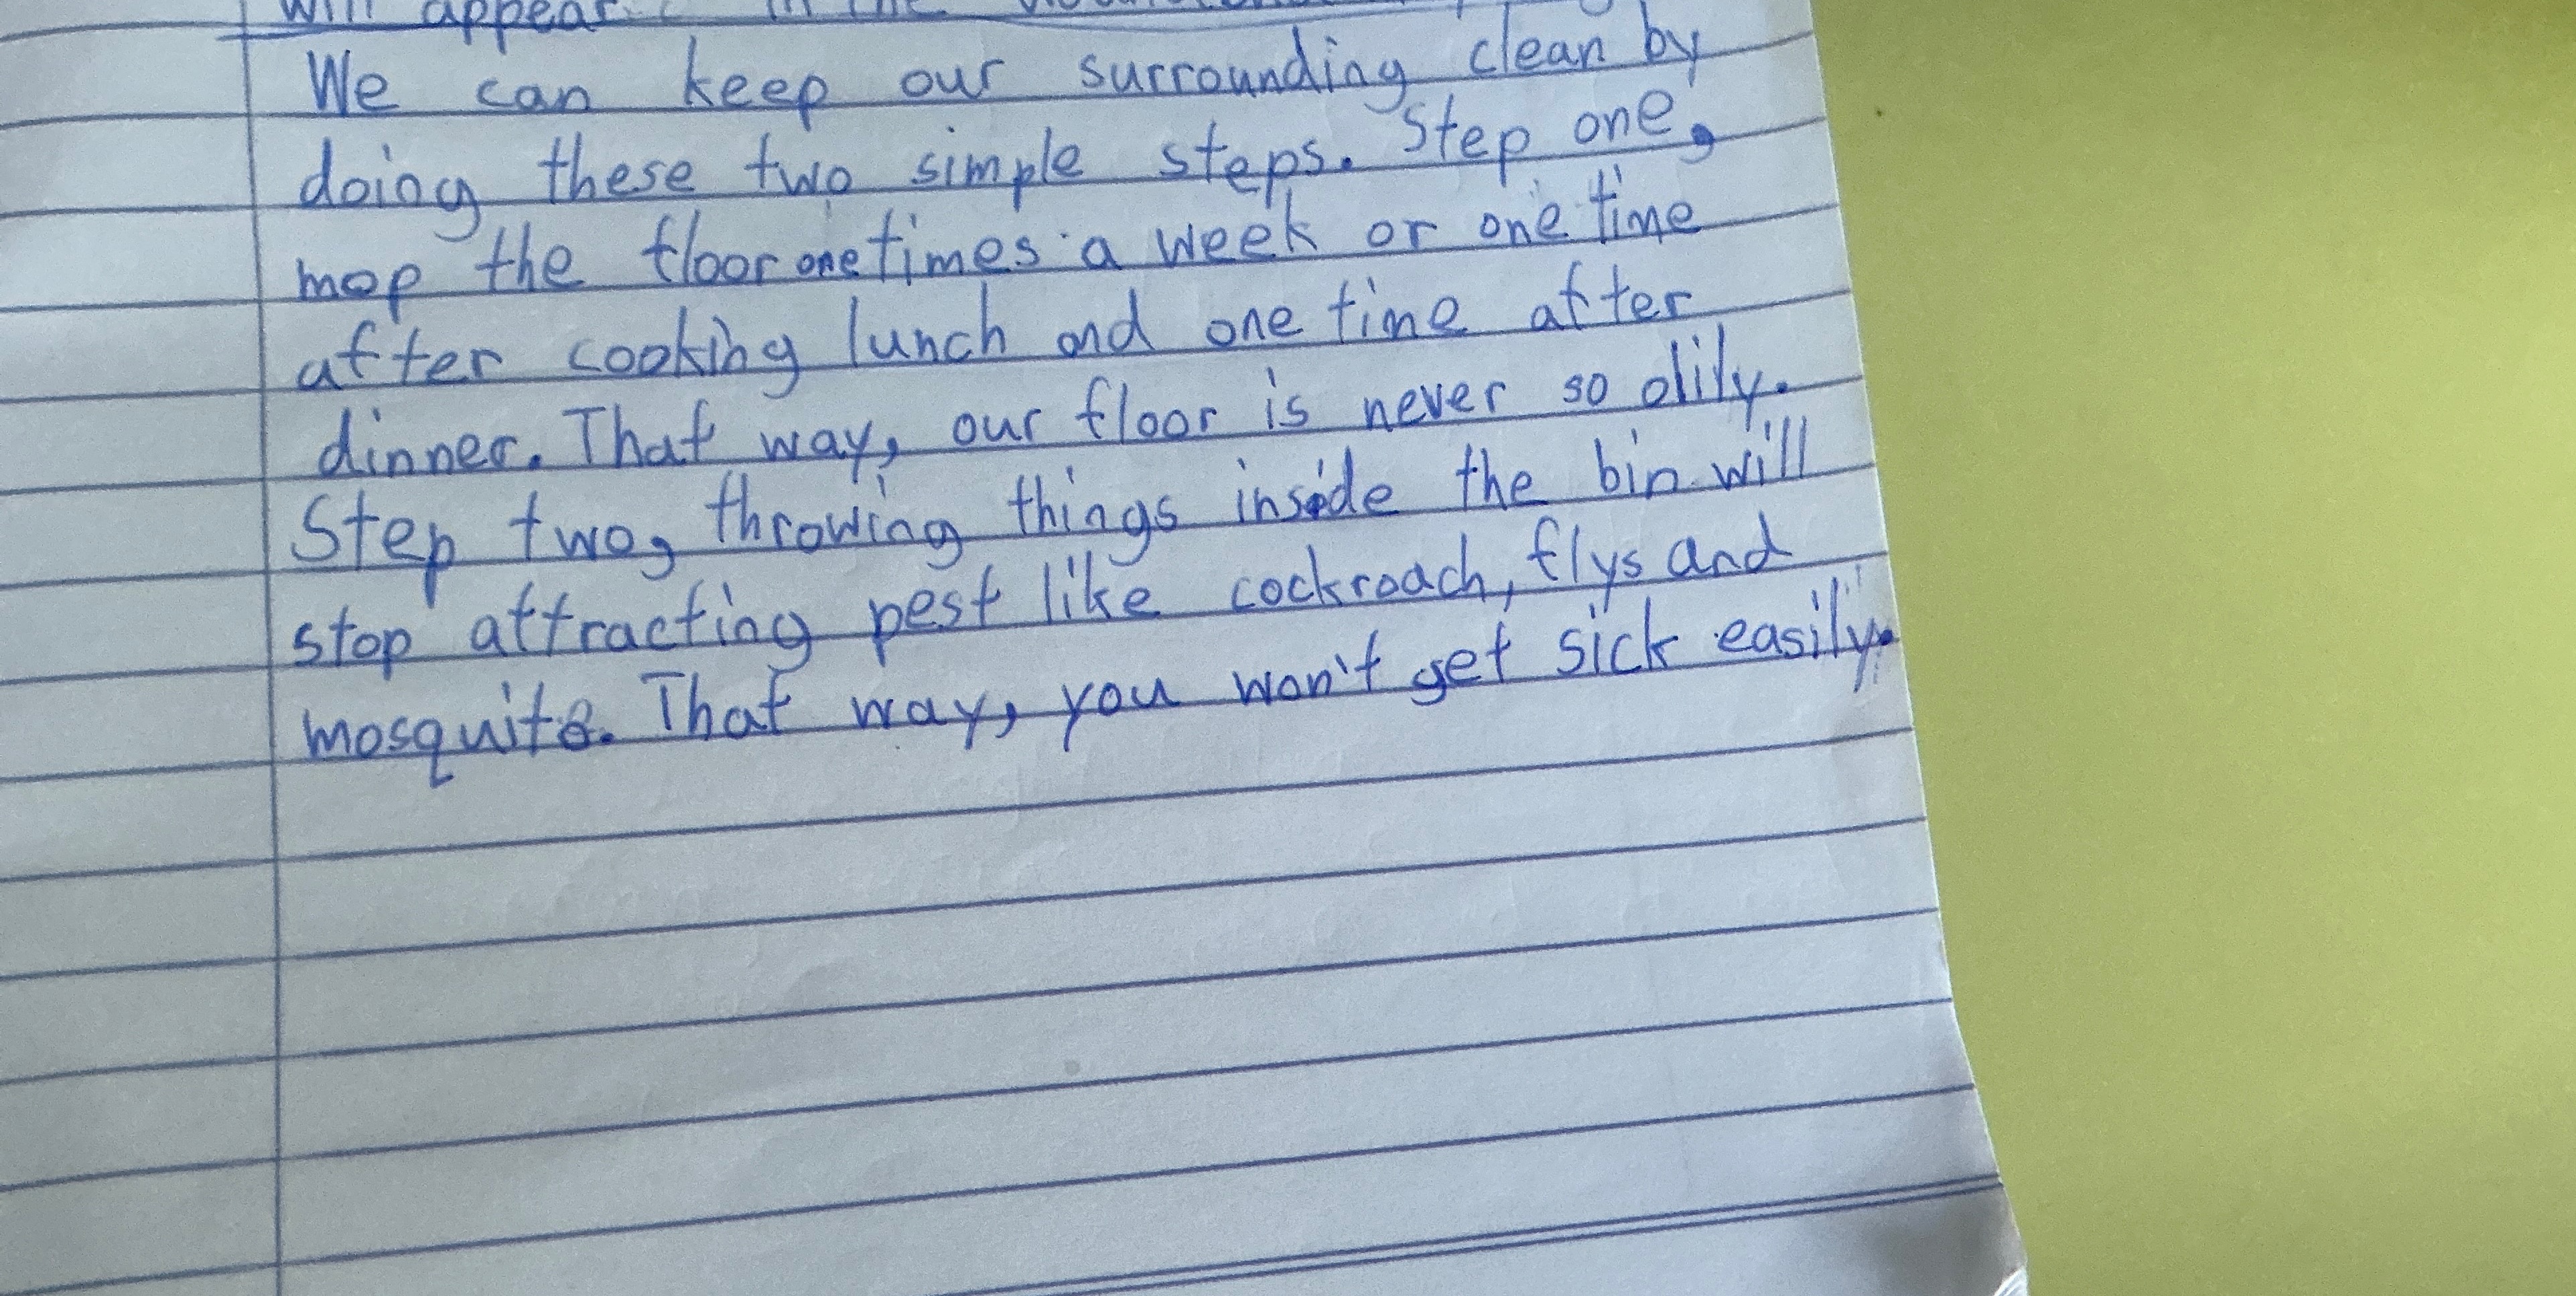 will appear in the
We can keep our surrounding clean by
doing these two simple steps. Step one,
mop the floor one times a week or one time
after cooking lunch and one time after
dinner. That way, our floor is never so olily.
Step two, throwing things inside the bin will
stop attracting pest like cockroach, flys and
mosquito. That way, you won't get sick easily.